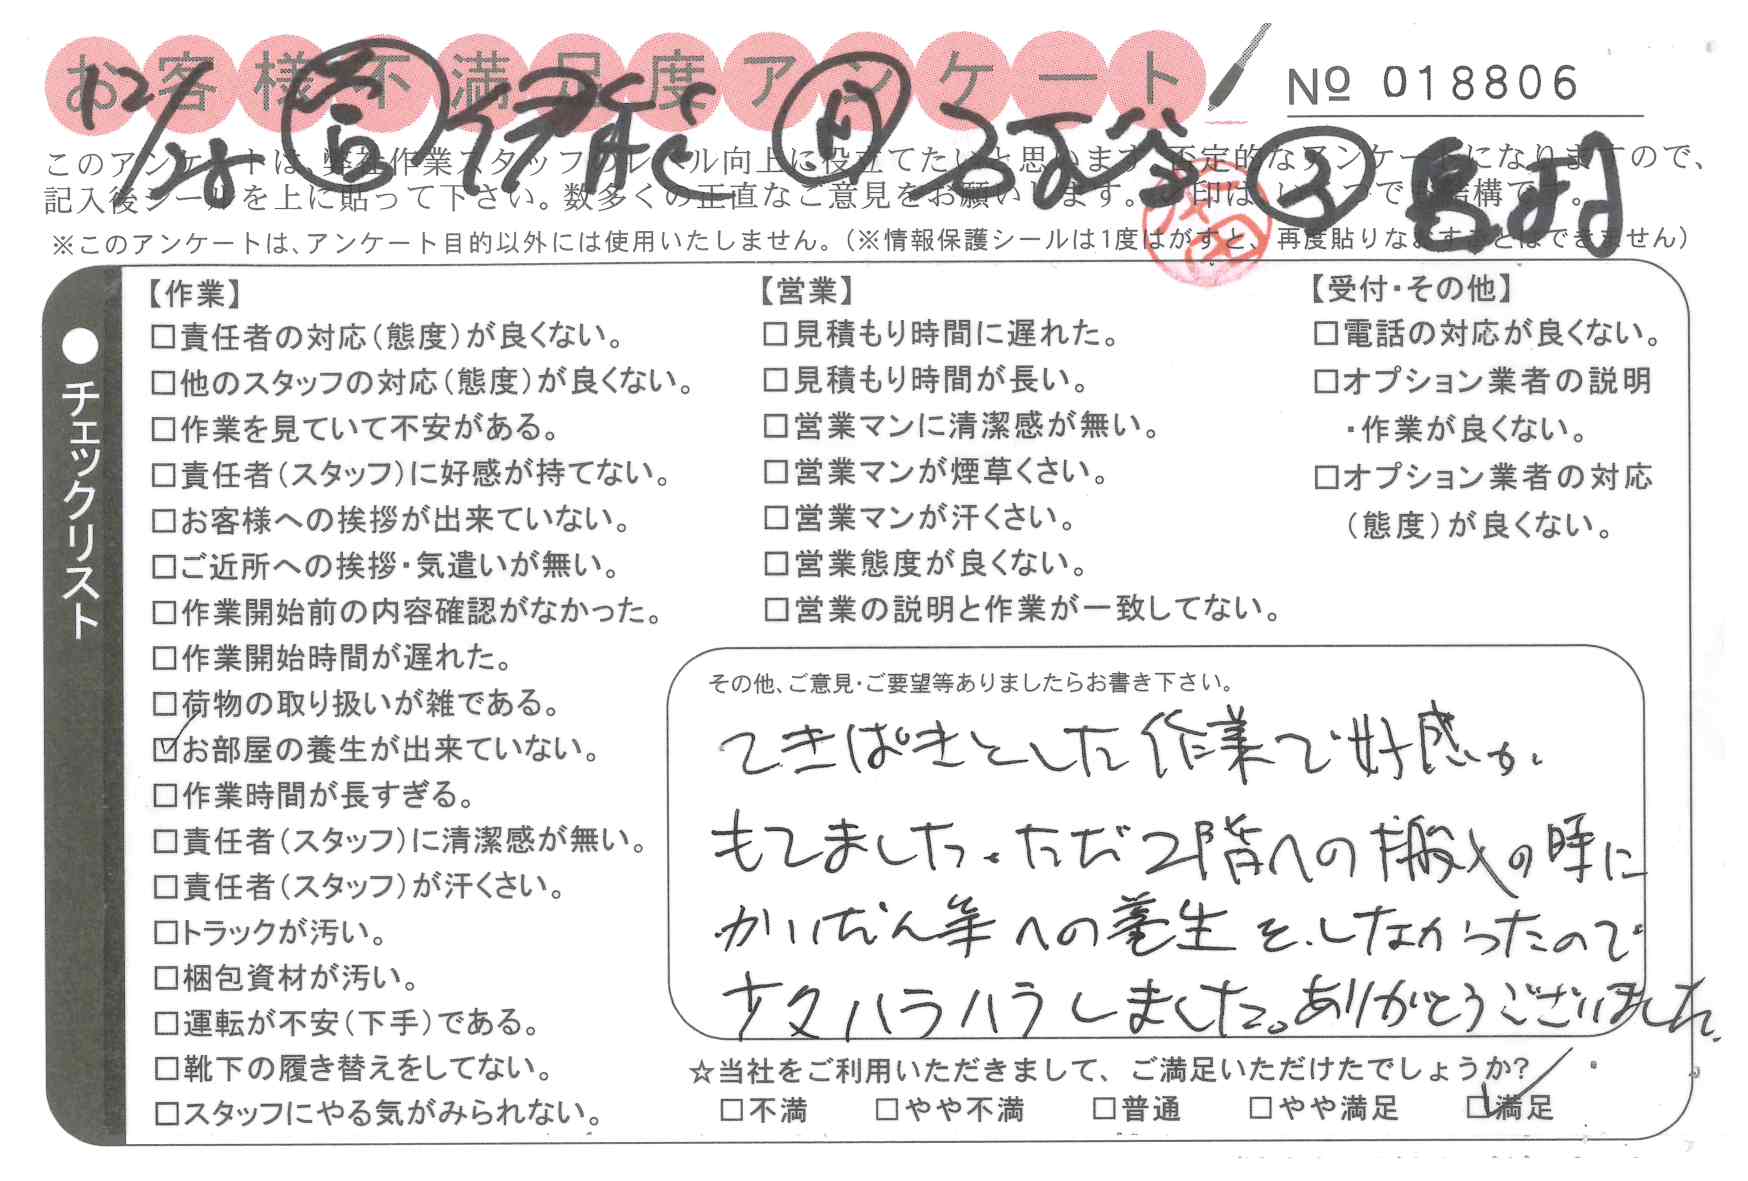 お客様不満足度アンケート
№ 018806
12/28 営 伊能 A 子 鳥羽
このアンケートは、弊社作業スタッフのレベル向上に役立てたいと思います。否定的なアンケートになりますので、
記入後シールを上に貼って下さい。数多くの正直なご意見をお願いします。✓印は、いくつでも結構です。
※このアンケートは、アンケート目的以外には使用いたしません。(※情報保護シールは1度はがすと、再度貼りなおすことはできません)
●チェックリスト
【作業】
□責任者の対応(態度)が良くない。
□他のスタッフの対応(態度)が良くない。
□作業を見ていて不安がある。
□責任者(スタッフ)に好感が持てない。
□お客様への挨拶が出来ていない。
□ご近所への挨拶・気遣いが無い。
□作業開始前の内容確認がなかった。
□作業開始時間が遅れた。
□荷物の取り扱いが雑である。
☑お部屋の養生が出来ていない。
□作業時間が長すぎる。
□責任者(スタッフ)に清潔感が無い。
□責任者(スタッフ)が汗くさい。
□トラックが汚い。
□梱包資材が汚い。
□運転が不安(下手)である。
□靴下の履き替えをしてない。
□スタッフにやる気がみられない。
【営業】
□見積もり時間に遅れた。
□見積もり時間が長い。
□営業マンに清潔感が無い。
□営業マンが煙草くさい。
□営業マンが汗くさい。
□営業態度が良くない。
□営業の説明と作業が一致してない。
【受付・その他】
□電話の対応が良くない。
□オプション業者の説明
・作業が良くない。
□オプション業者の対応
(態度)が良くない。
その他、ご意見・ご要望等ありましたらお書き下さい。
てきぱきとした作業で好感が
もてました。ただ2階への搬入の時に
かいだん等への養生をしなかったので
少々ハラハラしました。ありがとうございました。
☆当社をご利用いただきまして、ご満足いただけたでしょうか?
□不満 □やや不満 □普通 □やや満足 ☑満足